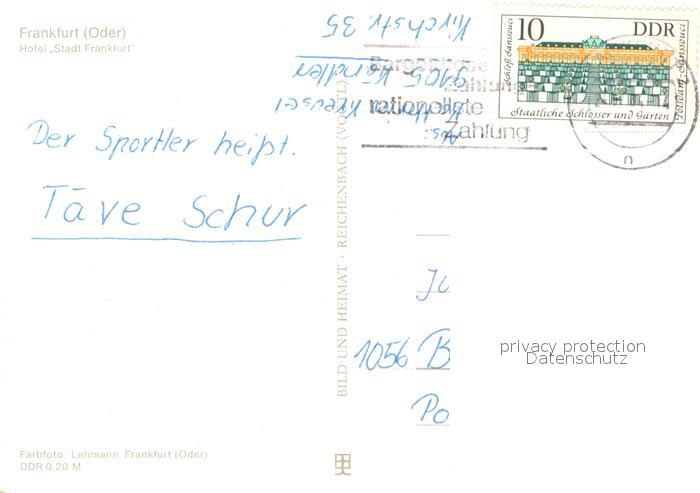 Frankfurt (Oder)
Hotel „Stadt Frankfurt"
Der Sportler heißt.
Täve Schur
Farbfoto: Lehmann, Frankfurt (Oder)
DDR 0,20 M
BILD UND HEIMAT · REICHENBACH (VOGTL)
Kirchstr. 35
9105
Kreusel
Abs.:
rationellste
Zahlung
10
DDR
Schloß Sanssouci
Potsdam-Sanssouci
Staatliche Schlösser und Gärten
n
Ju
1056 B
Po
privacy protection
Datenschutz